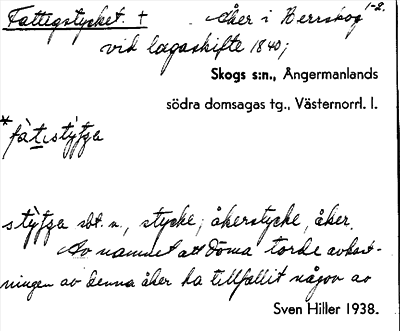 Fattigstycket. + Åker i Herrskog 1-2.
vid lagaskifte 1840;
Skogs s:n., Ångermanlands
södra domsagas tg., Västernorrl. l.
stycke; åkerstycke, åker.
Av namnet att döma torde avkast-
ningen av denna åker ha tillfallit någon av
Sven Hiller 1938.